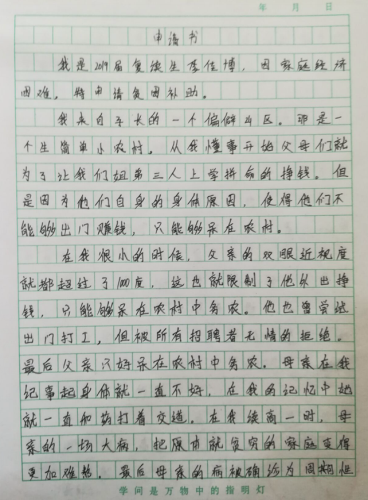 年 月 日
申请书
我是2019届复读生李佳博,因家庭经济
困难,特申请贫困补助。
我来自子长的一个偏僻山区。那是一
个生简单小农村,从我懂事开始父母们就
为了让我们姐弟三人上学拼命的挣钱。但
是因为他们自身的身体原因,使得他们不
能够出门赚钱,只能够呆在农村。
在我很小的时候,父亲的双眼近视度
就都超过了100度,这也就限制了他外出挣
钱,只能够呆在农村中务农。他也曾尝试
出门打工,但被所有招聘者无情的拒绝。
最后父亲只好呆在农村中务农。母亲在我
记事起身体就一直不好,在我的记忆中她
就一直和药打着交道。在我读高一时,母
亲的一场大病,把原本就贫穷的家庭变得
更加难堪,最后母亲的病被确给为周期性
学问是万物中的指明灯